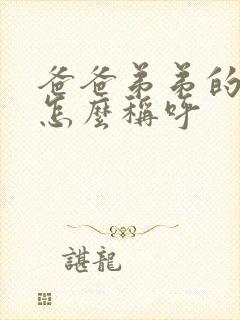 爸爸弟弟的
怎麼稱呼
諶龍